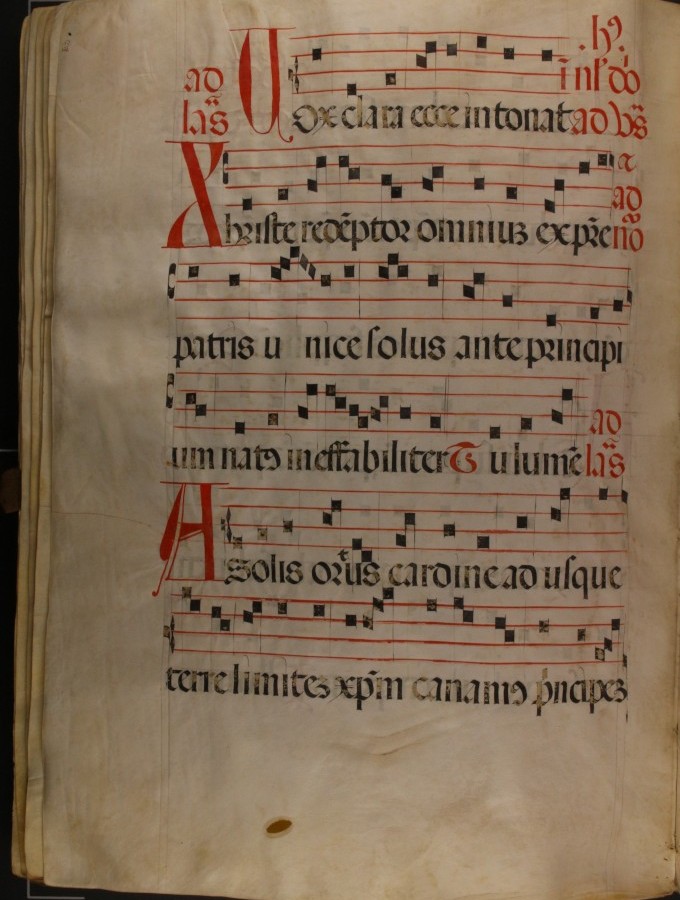 .hꝰ.
ad in f dō
las̄ Vox clara ecce intonat ad vs̄
a
ad
Xhriste redēptor omniuꝫ ex pr̄e no
patris u nice solus ante principi
ad
um natꝰ ineffabiliter T u lumē las̄
A Solis ortus cardine ad usque
terre limites xp̄m canamꝰ pncipeꝫ